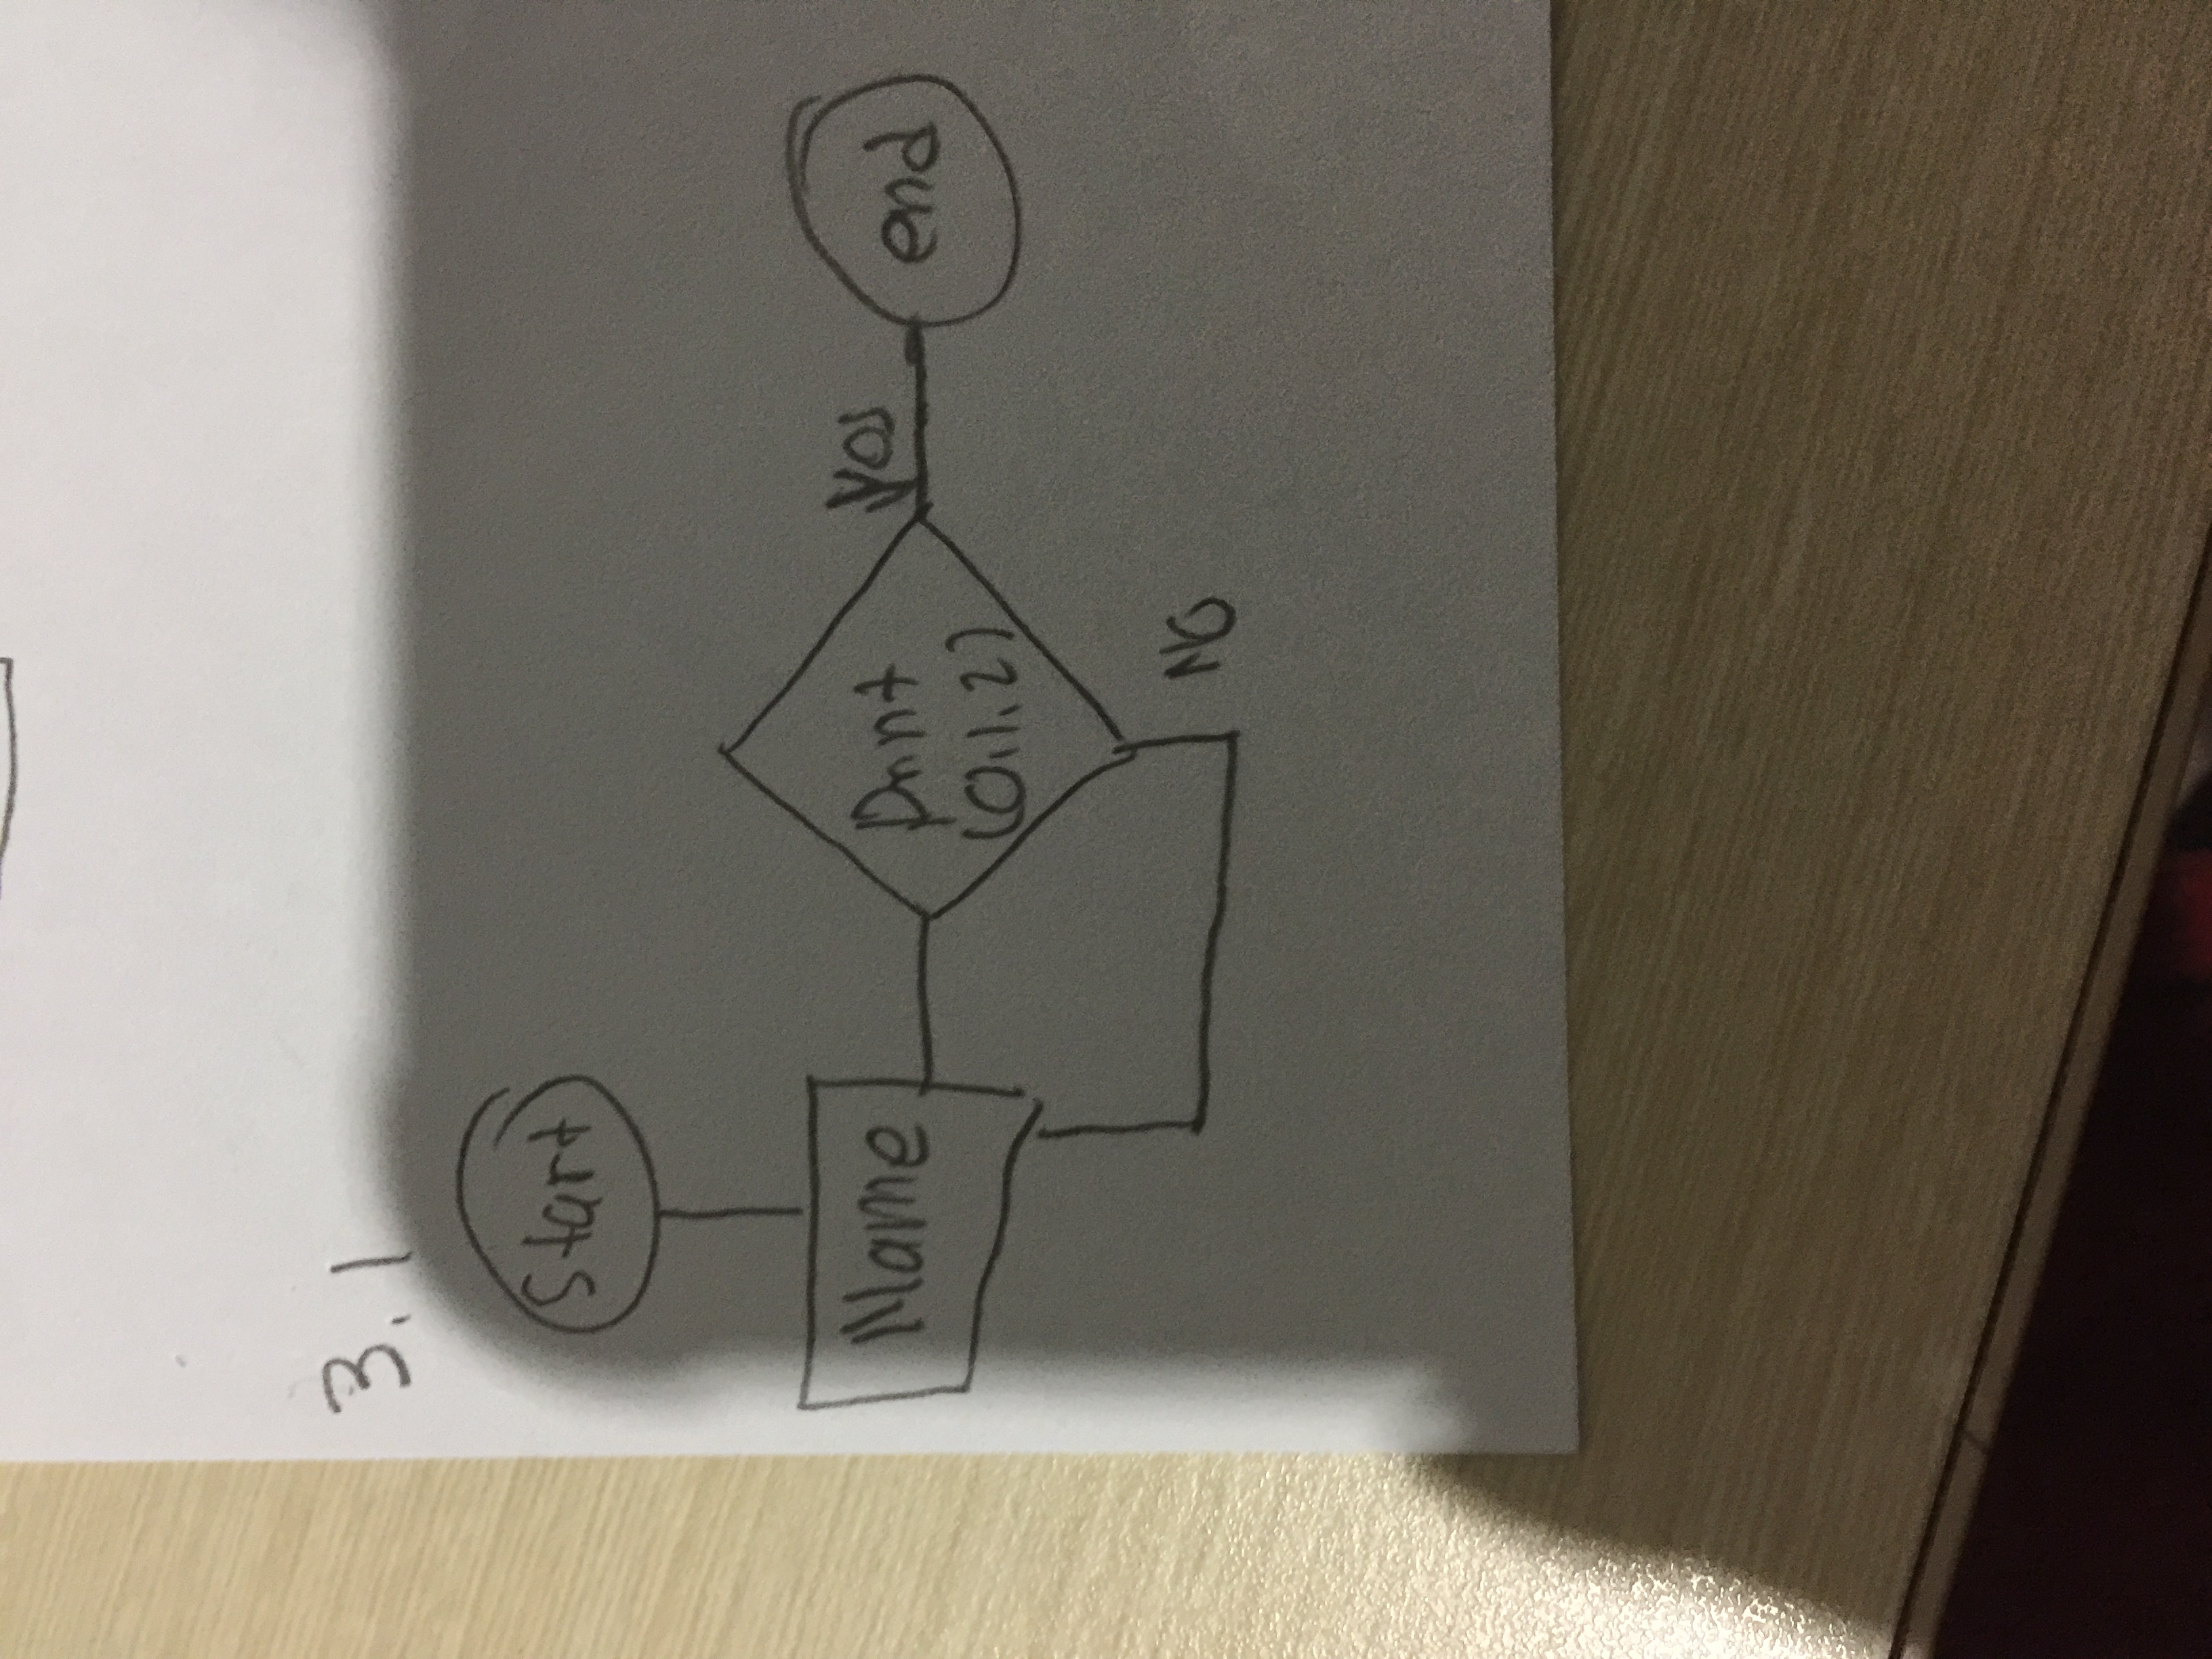 3.1
Start
Name
Print
(0.1.2)
yes
end
NO